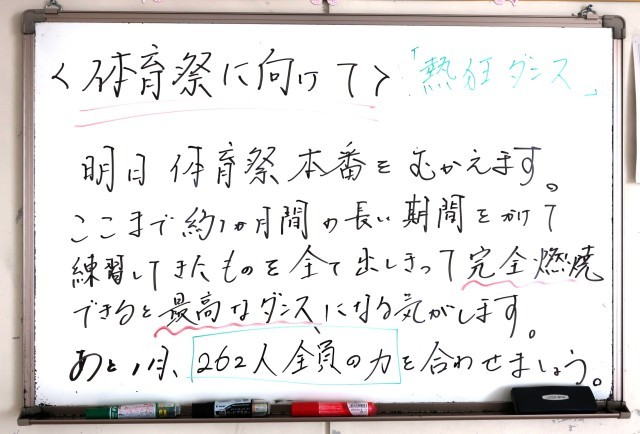 <体育祭に向けて> 「熱狂ダンス」
明日 体育祭本番をむかえます。
ここまで約1か月間の長い期間をかけて
練習してきたものを全て出しきって完全燃焼
できると最高なダンスになる気がします。
あと1日、262人全員の力を合わせましょう。